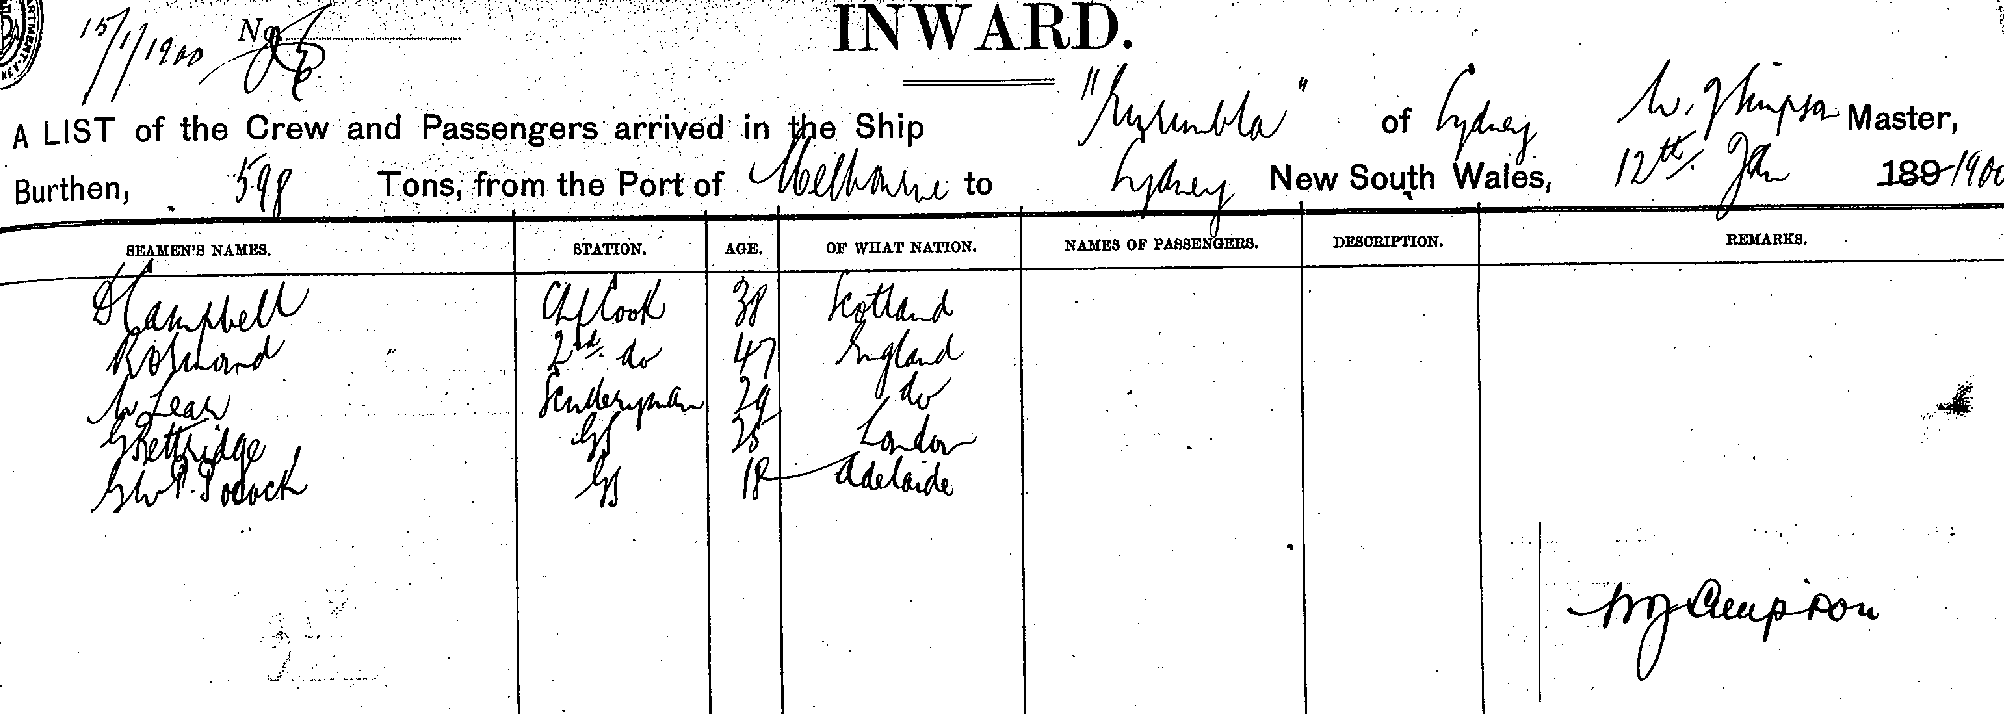 15/1/1900 No
INWARD.
A LIST of the Crew and Passengers arrived in the Ship " " of Sydney W. J Simpson Master,
Burthen, 598 Tons, from the Port of Melbourne to Sydney New South Wales, 12th. Jan 189 1900
SEAMEN'S NAMES. STATION. AGE. OF WHAT NATION. NAMES OF PASSENGERS. DESCRIPTION. REMARKS.
Campbell Chf Cook 38 Scotland
2nd. do 47 England
W Lear 29 do
G Kettridge GS 25 London
G W P. Pocock GS 18 Adelaide
W J Simpson